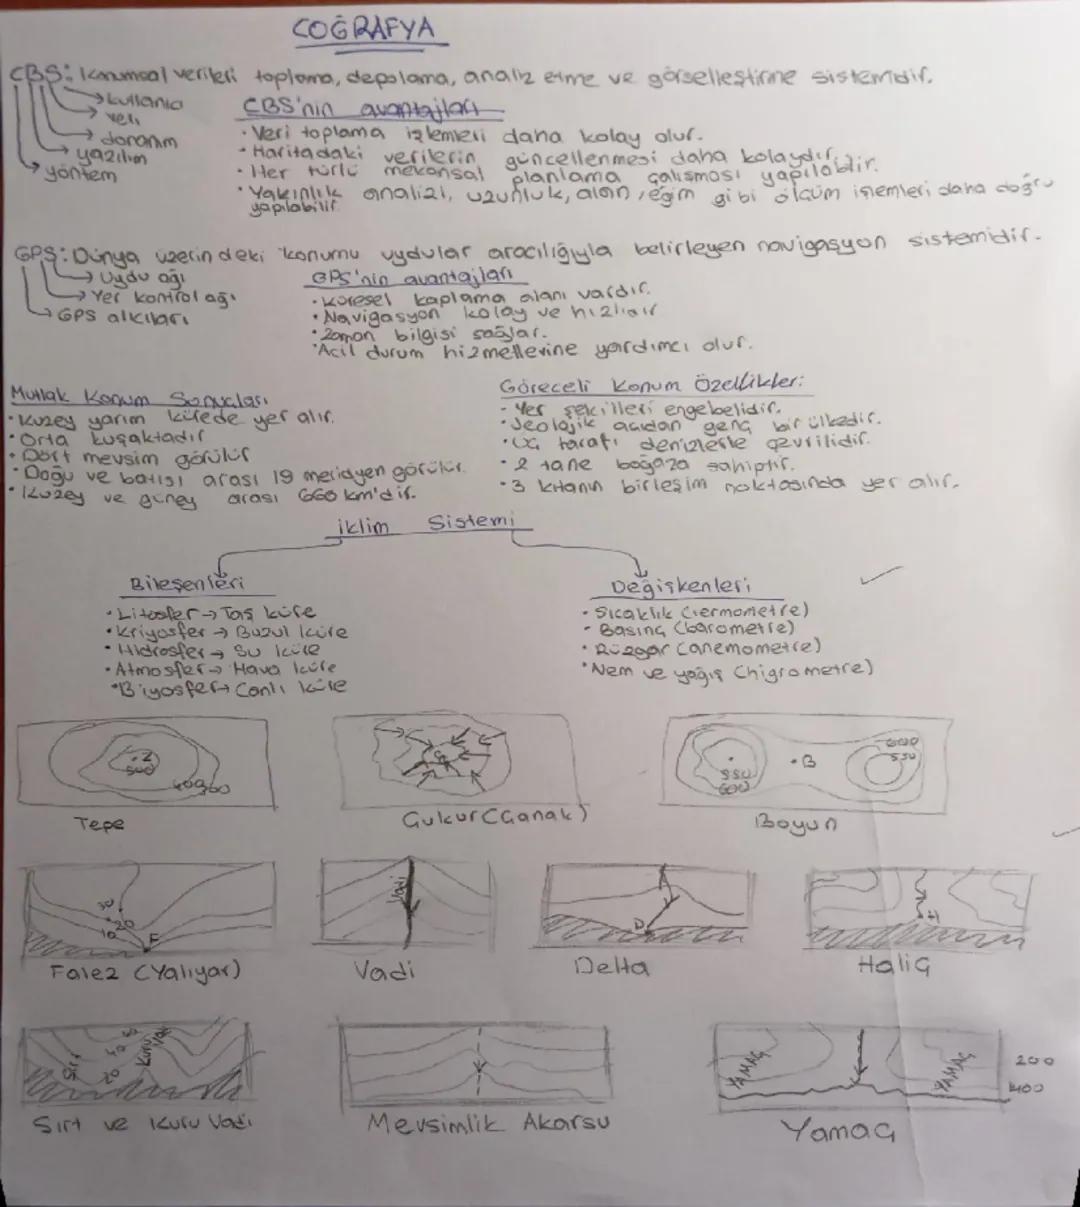 COĞRAFYA
CBS: Konumsal verileri toplama, depolama, analiz etme ve görselleştirme sistemidir.
→ kullanıcı
→ veri
→ donanım
→ yazılım
→ yöntem
CBS'nin avantajları
· Veri toplama işlemleri daha kolay olur.
· Haritadaki verilerin güncellenmesi daha kolaydır.
· Her türlü mekansal planlama çalışması yapılabilir.
· Yakınlık analizi, uzunluk, alan, eğim gibi ölçüm işlemleri daha doğru
yapılabilir.
GPS: Dünya üzerindeki konumu uydular aracılığıyla belirleyen navigasyon sistemidir.
→ Uydu ağı
→ Yer kontrol ağı
→ GPS alıcıları
GPS'nin avantajları
· Küresel kaplama alanı vardır.
· Navigasyon kolay ve hızlıdır
· Zaman bilgisi sağlar.
· Acil durum hizmetlerine yardımcı olur.
Mutlak Konum Sonuçları
· Kuzey yarım kürede yer alır.
· Orta kuşaktadır
· Dört mevsim görülür
· Doğu ve batısı arası 19 meridyen görülür.
· Kuzey ve güney arası 660 km'dir.
Göreceli Konum Özellikler:
· Yer şekilleri engebelidir.
· Jeolojik açıdan genç bir ülkedir.
· Üç tarafı denizlerle çevrilidir.
· 2 tane boğaza sahiptir.
· 3 kıtanın birleşim noktasında yer alır.
İklim Sistemi
Bileşenleri
· Litosfer → Taş küre
· Kriyosfer → Buzul küre
· Hidrosfer → Su küre
· Atmosfer → Hava küre
· Biyosfer → Canlı küre
Değişkenleri
· Sıcaklık (termometre)
· Basınç (barometre)
· Rüzgar (anemometre)
· Nem ve yağış (higrometre)
Z
500
Tepe
Ç
Çukur (Çanak)
550
600
· B
600
550
Boyun
30
20
10
F
Falez (Yalıyar)
Vadi
Vadi
D
Delta
H
Haliç
Sırt
20
40
Kuru Vadi
Sırt ve Kuru Vadi
Mevsimlik Akarsu
YAMAÇ
YAMAÇ
200
400
Yamaç